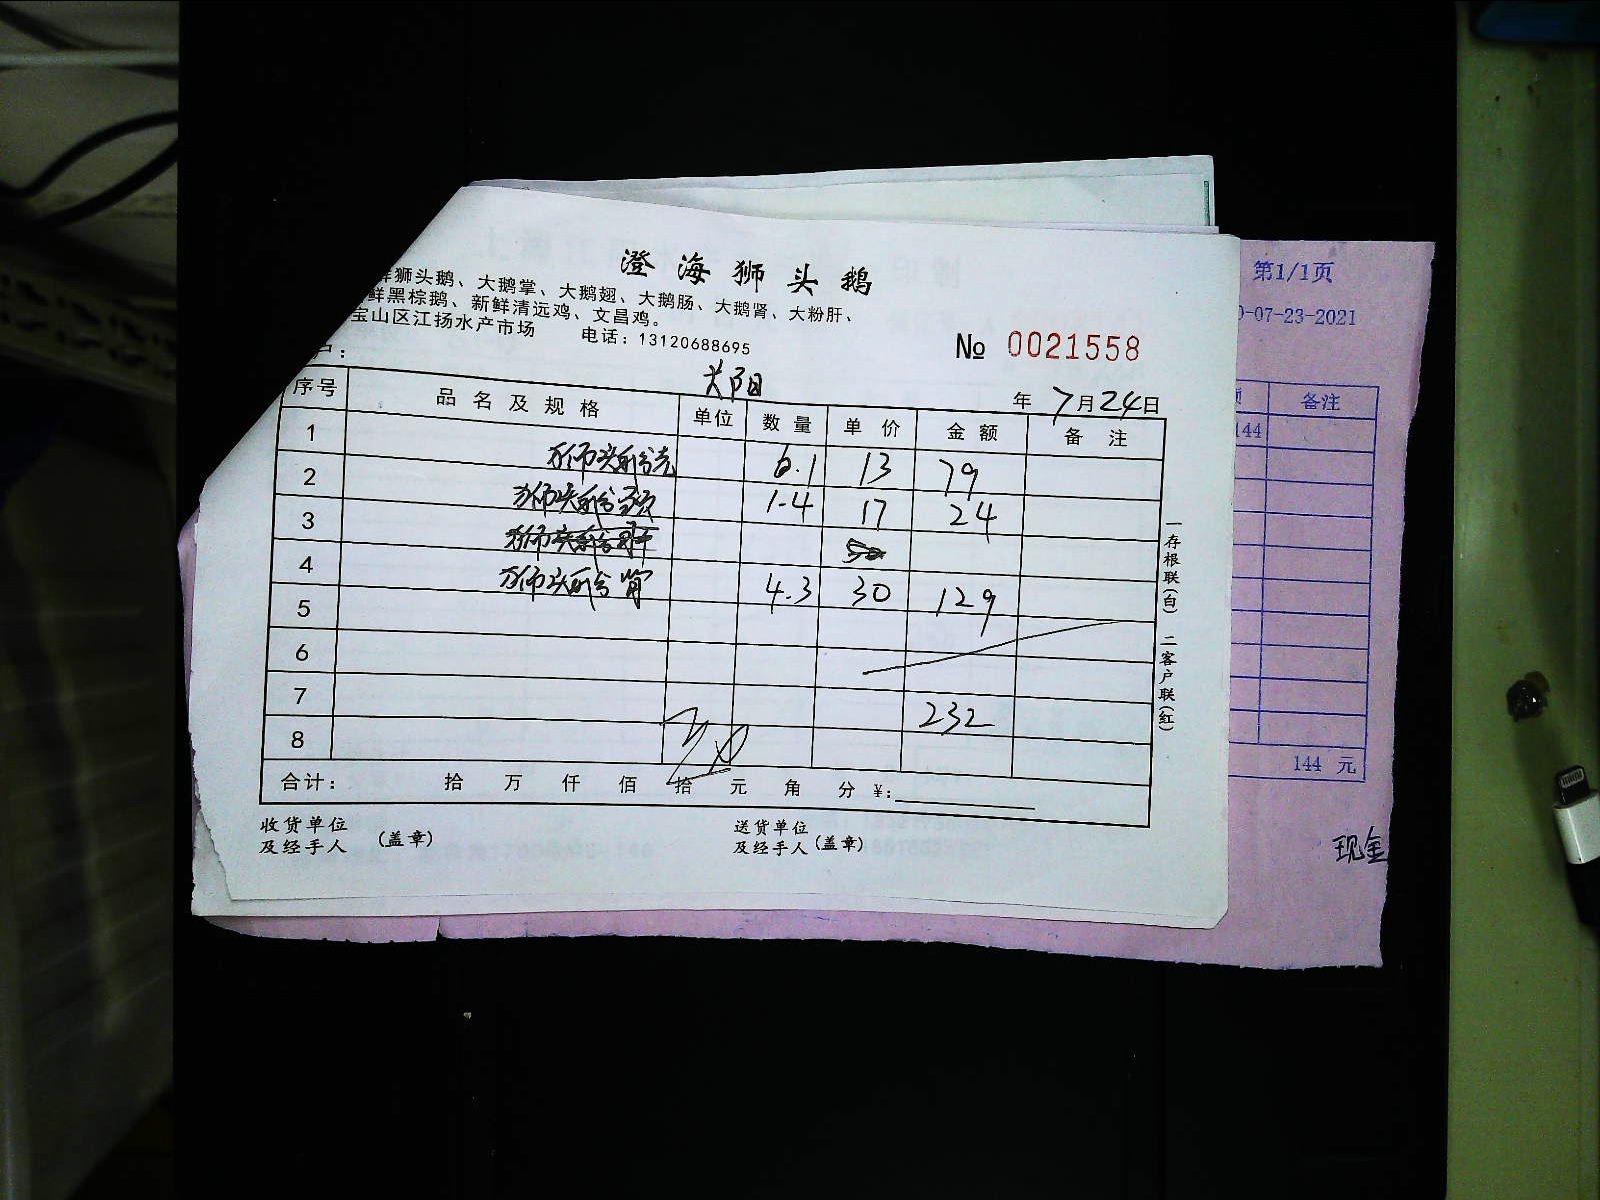 澄海狮头鹅
鲜狮头鹅、大鹅掌、大鹅翅、大鹅肠、大鹅肾、大粉肝、
鲜黑棕鹅、新鲜清远鸡、文昌鸡。
宝山区江扬水产市场 电话：13120688695
№ 0021558
户：
年 7月24日
序号 品名及规格 单位 数量 单价 金额 备注
1 狮头鹅 6.1 13 79
2 狮头鹅 1.4 17 24
3 狮头鹅肝 50
4 狮头鹅 4.3 30 129
5
6
7 232
8
合计： 拾 万 仟 佰 拾 元 角 分 ¥：
收货单位
及经手人 （盖章）
送货单位
及经手人（盖章）
一存根联（白） 二客户联（红）
第1/1页
0-07-23-2021
备注
144
144 元
现金